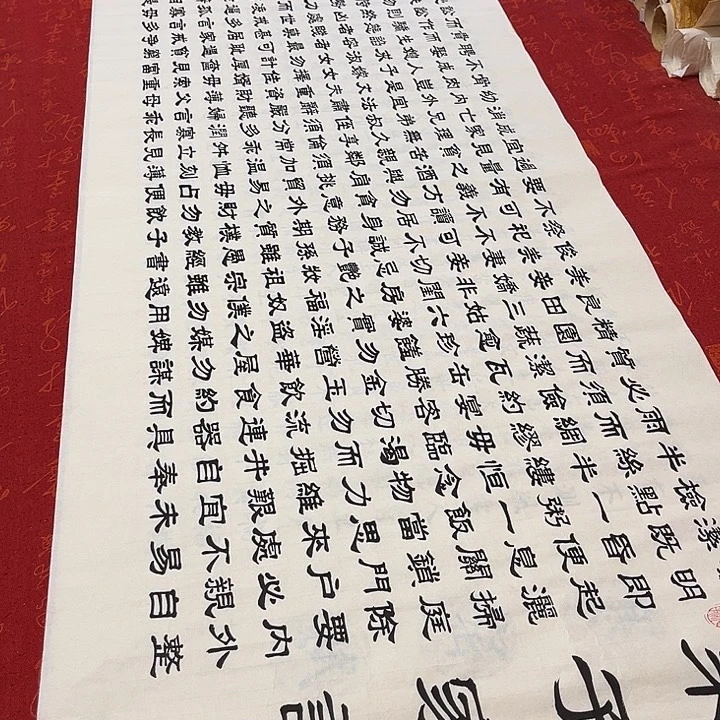 子家
明即起灑掃庭除要內外整
潔既昏便息關鎖門戶必親自
檢點一粥一飯當思來處不易
半絲半縷恆念物力維艱宜未
雨而綢繆毋臨渴而掘井自奉
必須儉約宴客切勿流連器具
質而潔瓦缶勝金玉飲食約而
精園蔬愈珍饈勿營華屋勿謀
良田三姑六婆實淫盜之媒婢
美妾嬌非閨房之福奴僕勿用
俊美妻妾切忌艷妝祖宗雖遠
祭祀不可不誠子孫雖愚經書
不可不讀居身務期質樸教子
要有義方勿貪意外之財勿飲
過量之酒與肩挑貿易毋占便
宜見貧苦親鄰須加溫恤刻薄
成家理無久享倫常乖舛立見
消亡兄弟叔侄須分多潤寡長
幼內外宜法肅辭嚴聽婦言乖
骨肉豈是丈夫重資財薄父母
不成人子嫁女擇佳婿毋索重
聘娶媳求淑女勿計厚奩見富